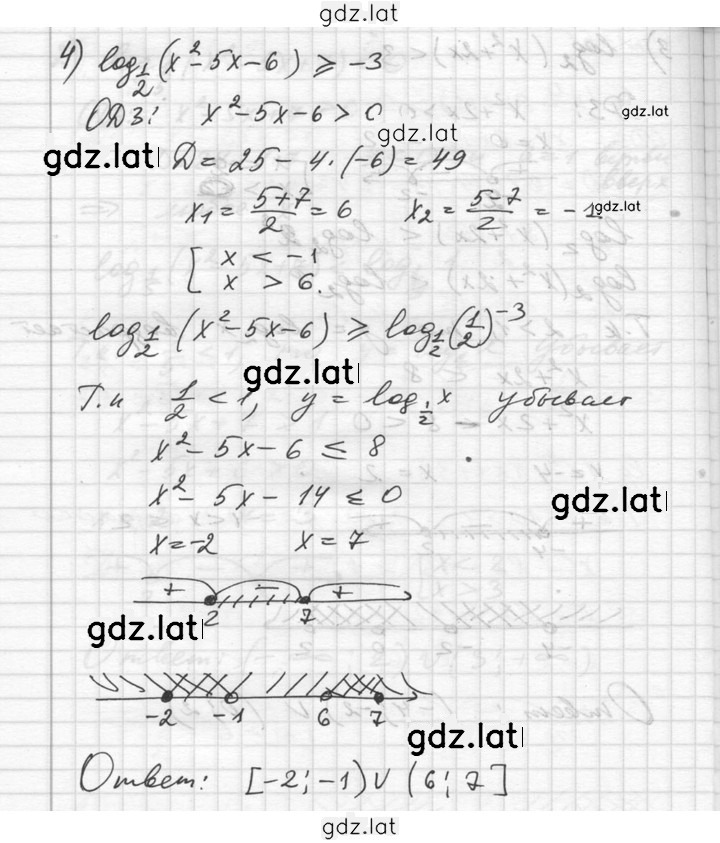 gdz.lat
4) log_{1/2}(x²-5x-6) ⩾ -3
ОДЗ: x²-5x-6 > 0
gdz.lat
gdz.lat
gdz.lat
Д = 25 - 4·(-6) = 49
x₁ = (5+7)/2 = 6 x₂ = (5-7)/2 = -1.
gdz.lat
[ x < -1
x > 6.
log_{1/2}(x²-5x-6) ⩾ log_{1/2}(1/2)^{-3}
gdz.lat
Т.к 1/2 < 1, y = log_{1/2}x убывает
x²-5x-6 ≤ 8
x²-5x-14 ≤ 0
gdz.lat
x=-2 x=7
+ - +
2 7
gdz.lat
-2 -1 6 7
gdz.lat
Ответ: [-2; -1) ∪ (6; 7]
gdz.lat